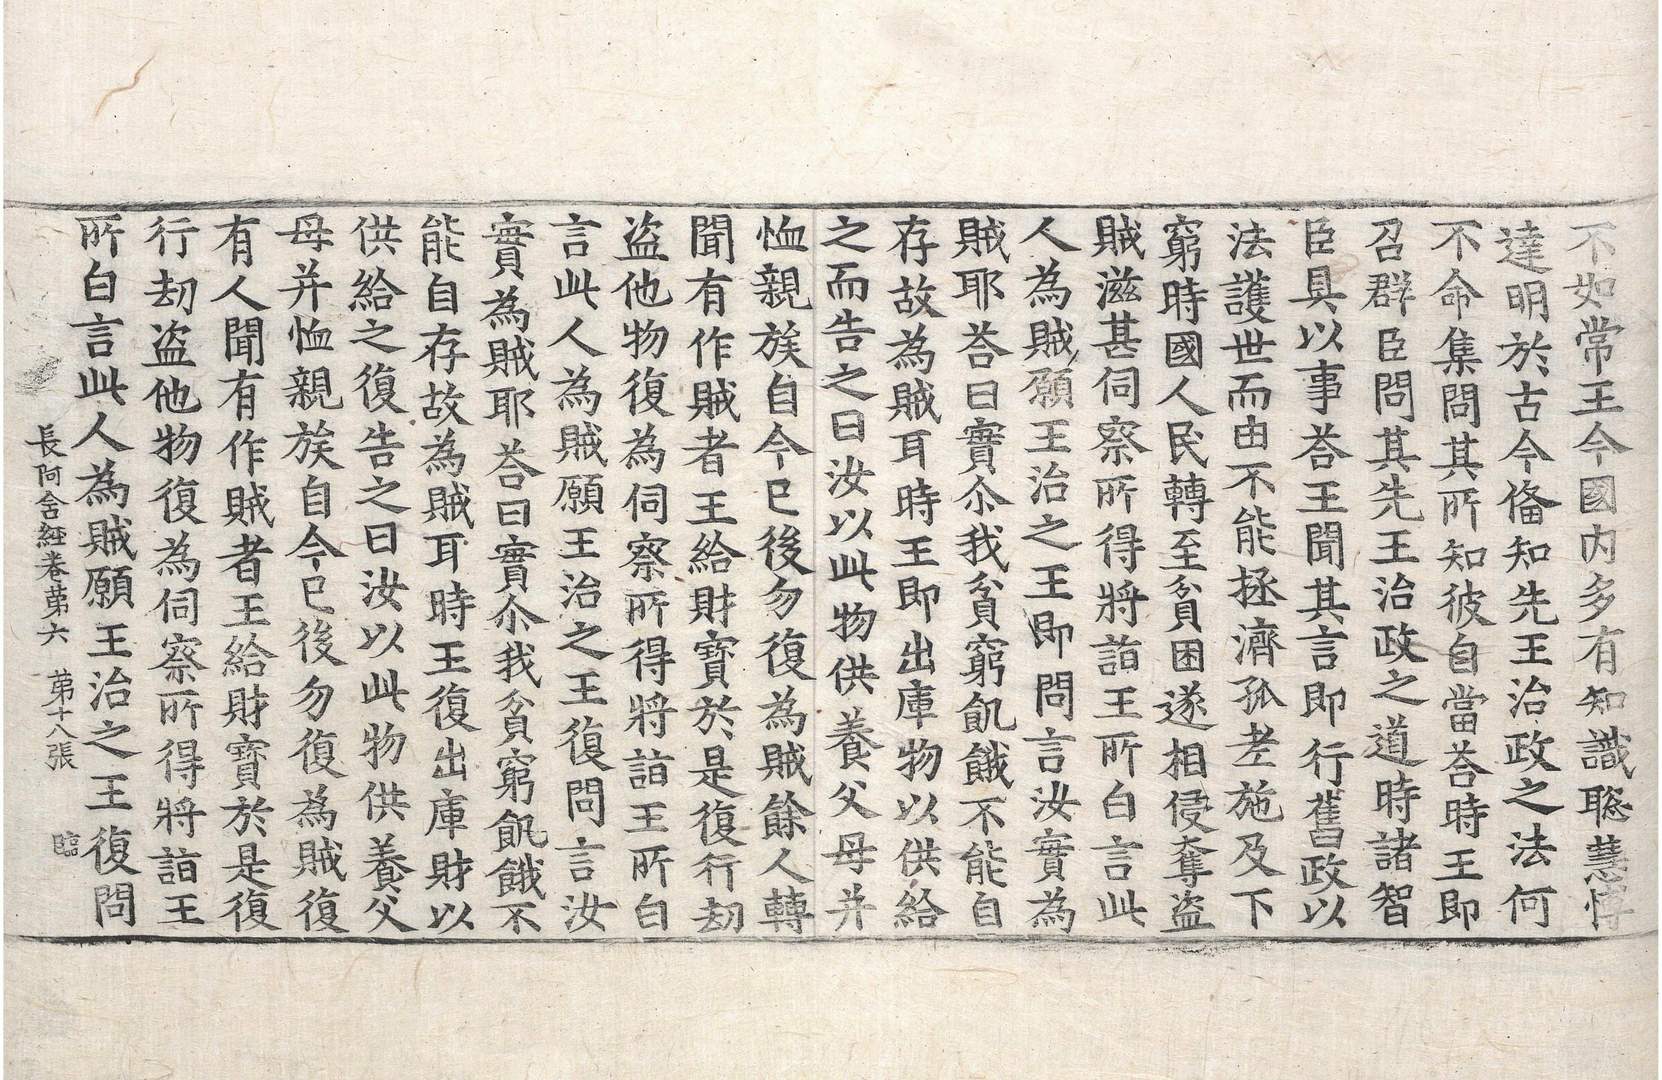 不如常王今國內多有知識聡慧博
達明於古今俻知先王治政之法何
不命集問其所知彼自當荅時王即
召群臣問其先王治政之道時諸智
臣具以事荅王聞其言即行舊政以
法護世而由不能拯濟孤老施及下
窮時國人民轉至貧困遂相侵奪盜
賊滋甚伺察所得將詣王所白言此
人為賊願王治之王即問言汝實為
賊耶荅曰實尒我貧窮飢餓不能自
存故為賊耳時王即出庫物以供給
之而告之曰汝以此物供養父母并
恤親族自今已後勿復為賊餘人轉
聞有作賊者王給財寶於是復行劫
盜他物復為伺察所得將詣王所白
言此人為賊願王治之王復問言汝
實為賊耶荅曰實尒我貧窮飢餓不
能自存故為賊耳時王復出庫財以
供給之復告之曰汝以此物供養父
母并恤親族自今已後勿復為賊復
有人聞有作賊者王給財寶於是復
行劫盜他物復為伺察所得將詣王
所白言此人為賊願王治之王復問
長阿含經卷第六 第十八張 臨